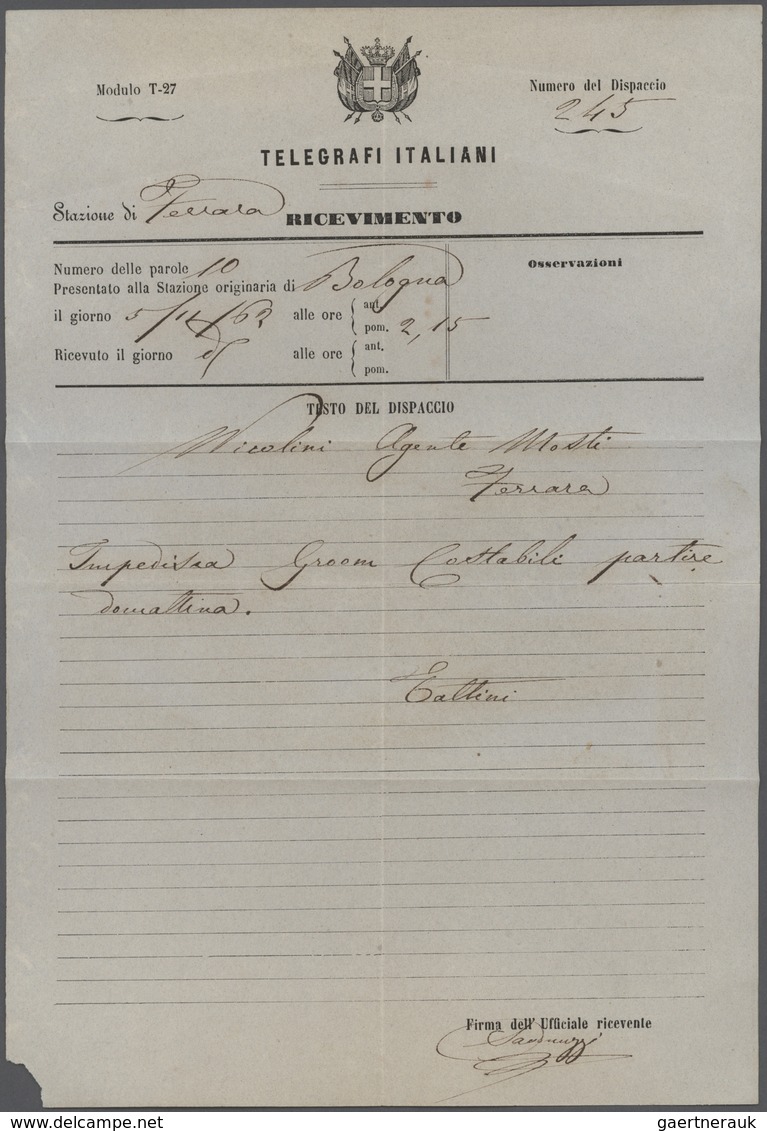 Modulo T-27
Numero del Dispaccio
245
TELEGRAFI ITALIANI
Stazione di Ferrara
RICEVIMENTO
Numero delle parole 10
Presentato alla Stazione originaria di Bologna
il giorno 5/11/62 alle ore ant. pom. 2,15
Ricevuto il giorno alle ore ant. pom.
Osservazioni
TESTO DEL DISPACCIO
Nicolini Agente Mosti
Ferrara
Impedisca Groom Costabili partire
domattina.
Tattini
Firma dell' Ufficiale ricevente
delcampe.net
gaertnerauk